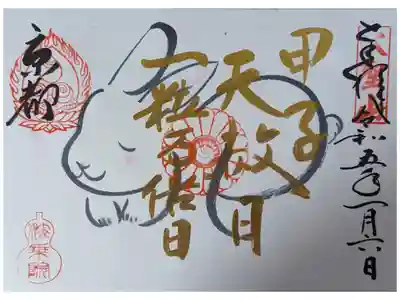 令和五年一月六日
甲子
天赦日
一粒万倍日
京都